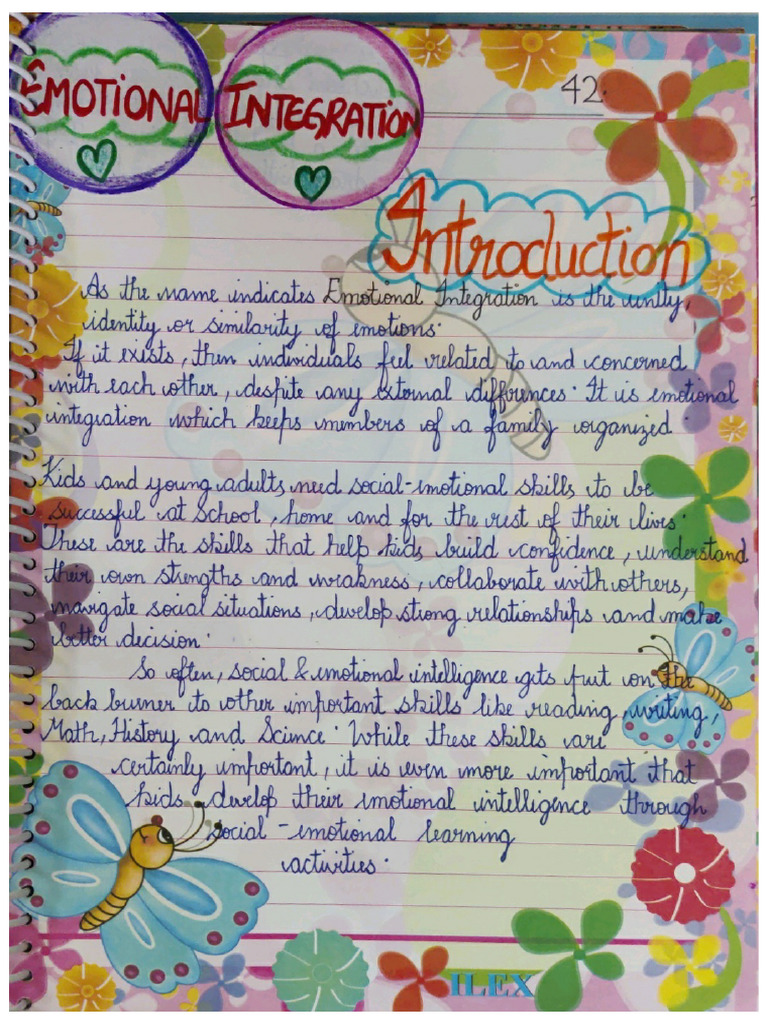 EMOTIONAL INTEGRATION
42.
Introduction
As the name indicates Emotional Integration is the unity,
identity or similarity of emotions.
If it exists, then individuals feel related to and concerned
with each other, despite any external differences. It is emotional
integration which keeps members of a family organized.
Kids and young adults need social-emotional skills to be
successful at School, home and for the rest of their lives.
These are the skills that help kids build confidence, understand
their own strengths and weakness, collaborate with others,
navigate social situations, develop strong relationships and make
better decision.
So often, social & emotional intelligence gets put on the
back burner to other important skills like reading, writing,
Math, History and Science. While these skills are
certainly important, it is even more important that
kids develop their emotional intelligence through
social-emotional learning
activities.
ILEX